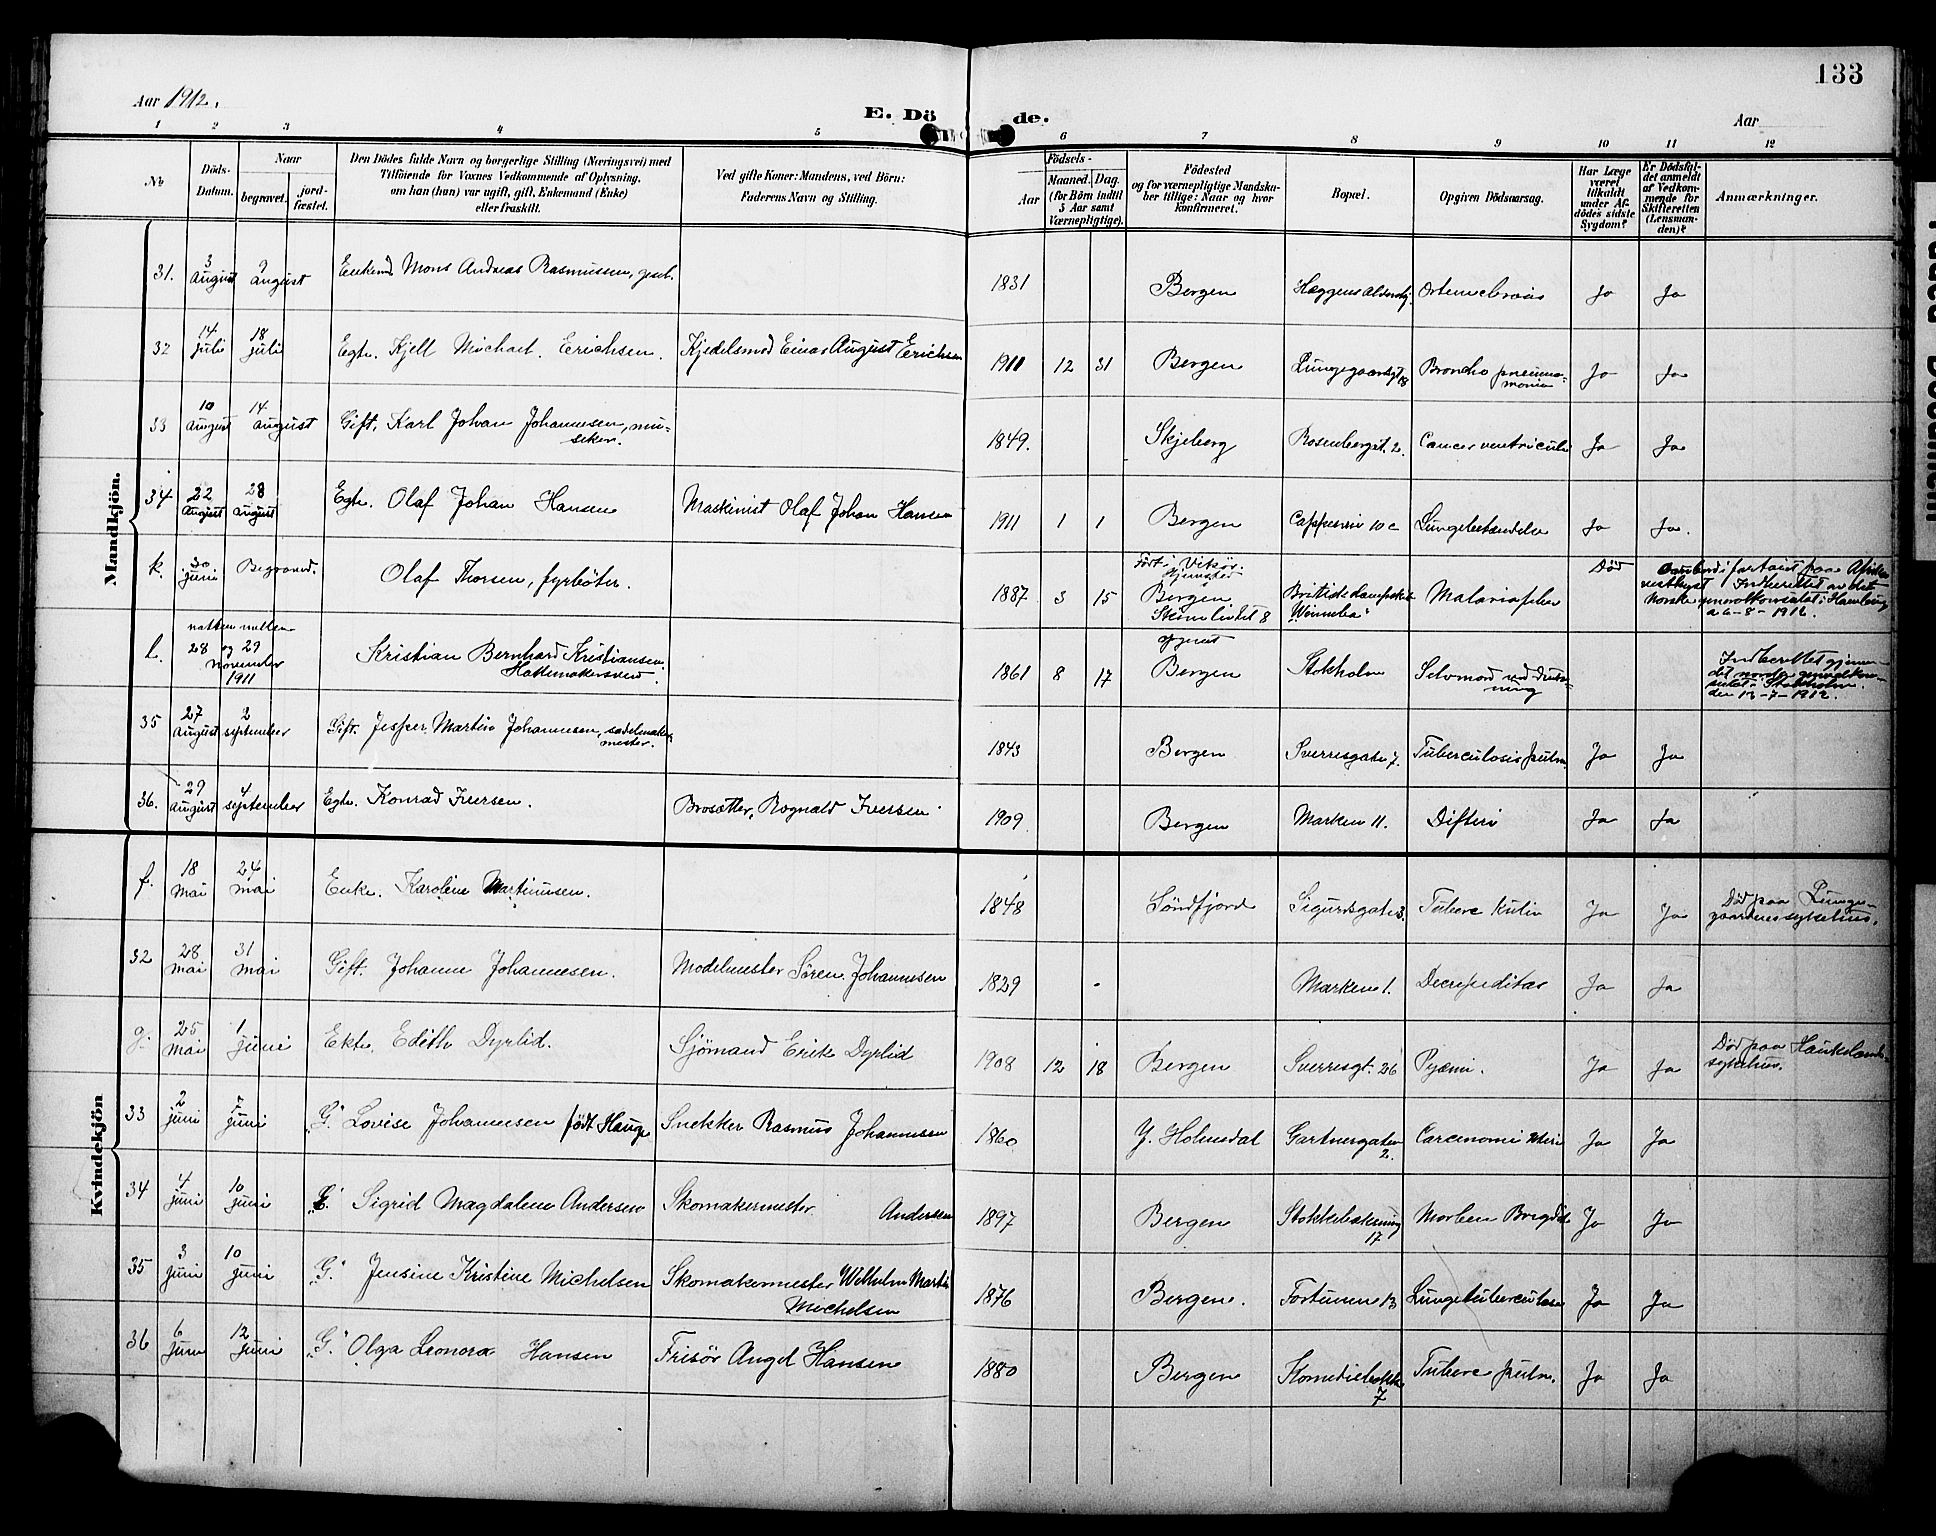 133
Aar 1912.
E. Dö de.
Aar
1 2 3 4 5 6 7 8 9 10 11 12
No
Döds-Datum.
Naar
begravet.
jord-fæstet.
Den Dödes fulde Navn og borgerlige Stilling (Næringsvei) med
Tilföiende for Voxnes Vedkommende af Oplysning,
om han (hun) var ugift, gift, Enkemand (Enke)
eller fraskilt.
Ved gifte Koner: Mandens, ved Börn:
Faderens Navn og Stilling.
Födsels-
Aar
Maaned. Dag.
(for Börn indtil
5 Aar samt
Værnepligtige).
Födested
og for værnepligtige Mandska-
ber tillige: Naar og hvor
konfirmeret.
Bopæl.
Opgiven Dödsaarsag.
Har Læge
været
tilkaldt
under Af-
dödes sidste
Sygdom?
Er Dödsfal-
det anmeldt
af Vedkom-
mende for
Skifteretten
(Lensman-
den)?
Anmærkninger.
Mandkjön.
31. 3 August 9 August Enkemd Mons Andreas Rasmussen, 1831 Bergen Ja Ja
32 14 Juli 18 Juli Egte. Kjell Michael Erichsen. Kjedelsmed Einar August Erichsen 1911 12 31 Bergen Lungegaardsgt 18 Broncho pneumo-
monia Ja Ja
33 10 August 14 August Gift. Karl Johan Johannesen, mu-
siker. 1849. Skjeberg Rosenbergst. 2. Cancer ventriculi Ja Ja
34 22 August 28 August Egte. Olaf Johan Hansen Maskinist Olaf Johan Hansen 1911 1 1 Bergen 10 c Lungebetændelse Ja Ja.
k. 30 juni Begravet. Olaf Thorsen, fyrböter. 1887 3 15 Födt i Vikör.
Hjemsted
Bergen
8 Britisk dampskib
"Winneba" Malariafeber Död Ombord i fartöiet paa Afrikas
vestkyst. Indberettet av det
norske generalkonsulat i Hamburg
d. 6-8-1912.
l. natten mellem
28 og 29
November
1911 Kristian Bernhard Kristiansen,
Hattemakersvend. 1861 8 17 Bergen Stokholm Selvmord ved drukning Indberettet gjennem
det norske generalkon-
sulat i Stockholm
den 13-7-1912.
35 27 August 2 september Gift. Jesper Martin Johannesen, sadelmaker-
mester. 1843 Bergen Sverresgate 7. Tuberculosis pulm. Ja Ja
36. 29 August 4 september Egte. Konrad Iversen. Brosætter, Rognald Iversen 1909 Bergen Marken 11. Difteri Ja Ja
Kvindekjön
f. 18 Mai 24 Mai Enke. Karoline Martinusen. 1848 Söndfjord Sigurdsgate 3. Ja Ja Död paa Lunge-
gaardens sykehus.
32 28 Mai 31 Mai Gift. Johanne Johannesen. Modelmester Sören Johannesen 1829 Marken 1. Decrepiditas Ja Ja
g. 25 Mai 1 Juni Ekte. Edith Dyrlid. Sjömand Erik Dyrlid 1908 12 18 Bergen Sverresgt. 26 Pyæmi. Ja Ja Död paa Haukelands
sykehus.
33 2 juni 7 juni "G." Lovise Johannesen födt Hauge Snekker Rasmus Johannesen 1860 Y. Holmedal Gartnergaten
2. Carcenomi Uteri Ja Ja
34 4 juni 10 juni Sigrid Magdalene Andersen Skomakermester Andersen 1897 Bergen
17 Ja Ja
35 3 Juni 10 juni "G." Jensine Kristine Michelsen Skomakermester Wilhelm Martin
Michelsen 1876 Bergen. Fortunen 13 Lungetuberculose Ja Ja
36 6 Juni 12 Juni "G." Olga Leonora Hansen Frisör Hansen 1880 Bergen
7 Tuberc pulm. Ja Ja